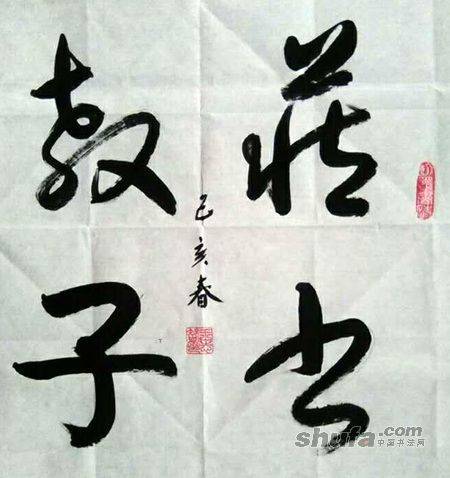 藏书
教子
己亥春
shufa.com
中国书法网